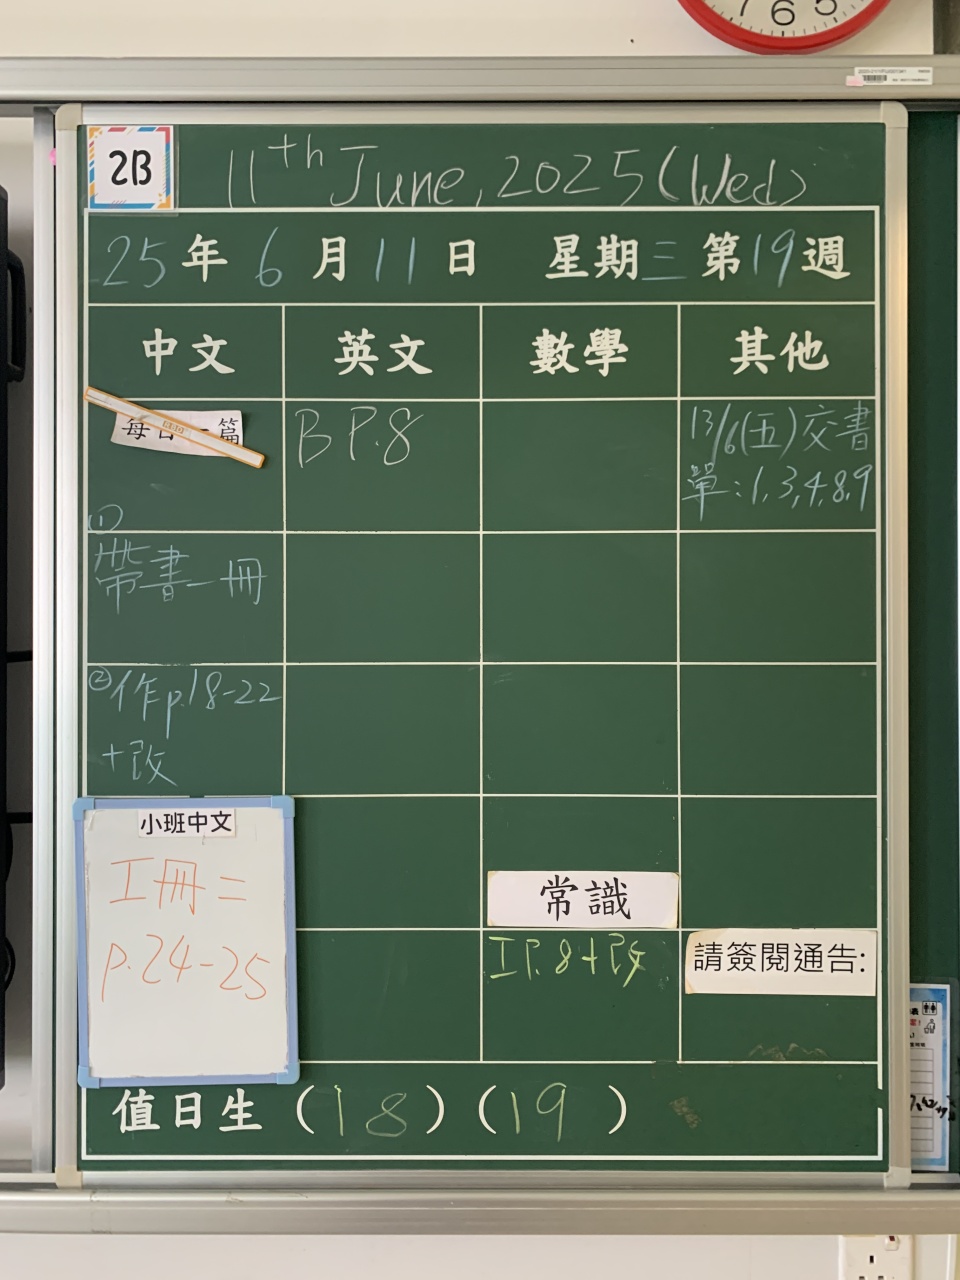 7 6 5
2B
11th June, 2025 (Wed)
25年6月11日 星期三 第19週
中文 英文 數學 其他
每日一篇
B P.8
13/6(五)交書
單:1,3,4,8,9
①
帶書一冊
②作p.18-22
+改
小班中文
工冊二
p.24-25
常識
工P.8+改
請簽閱通告:
值日生 (18) (19)